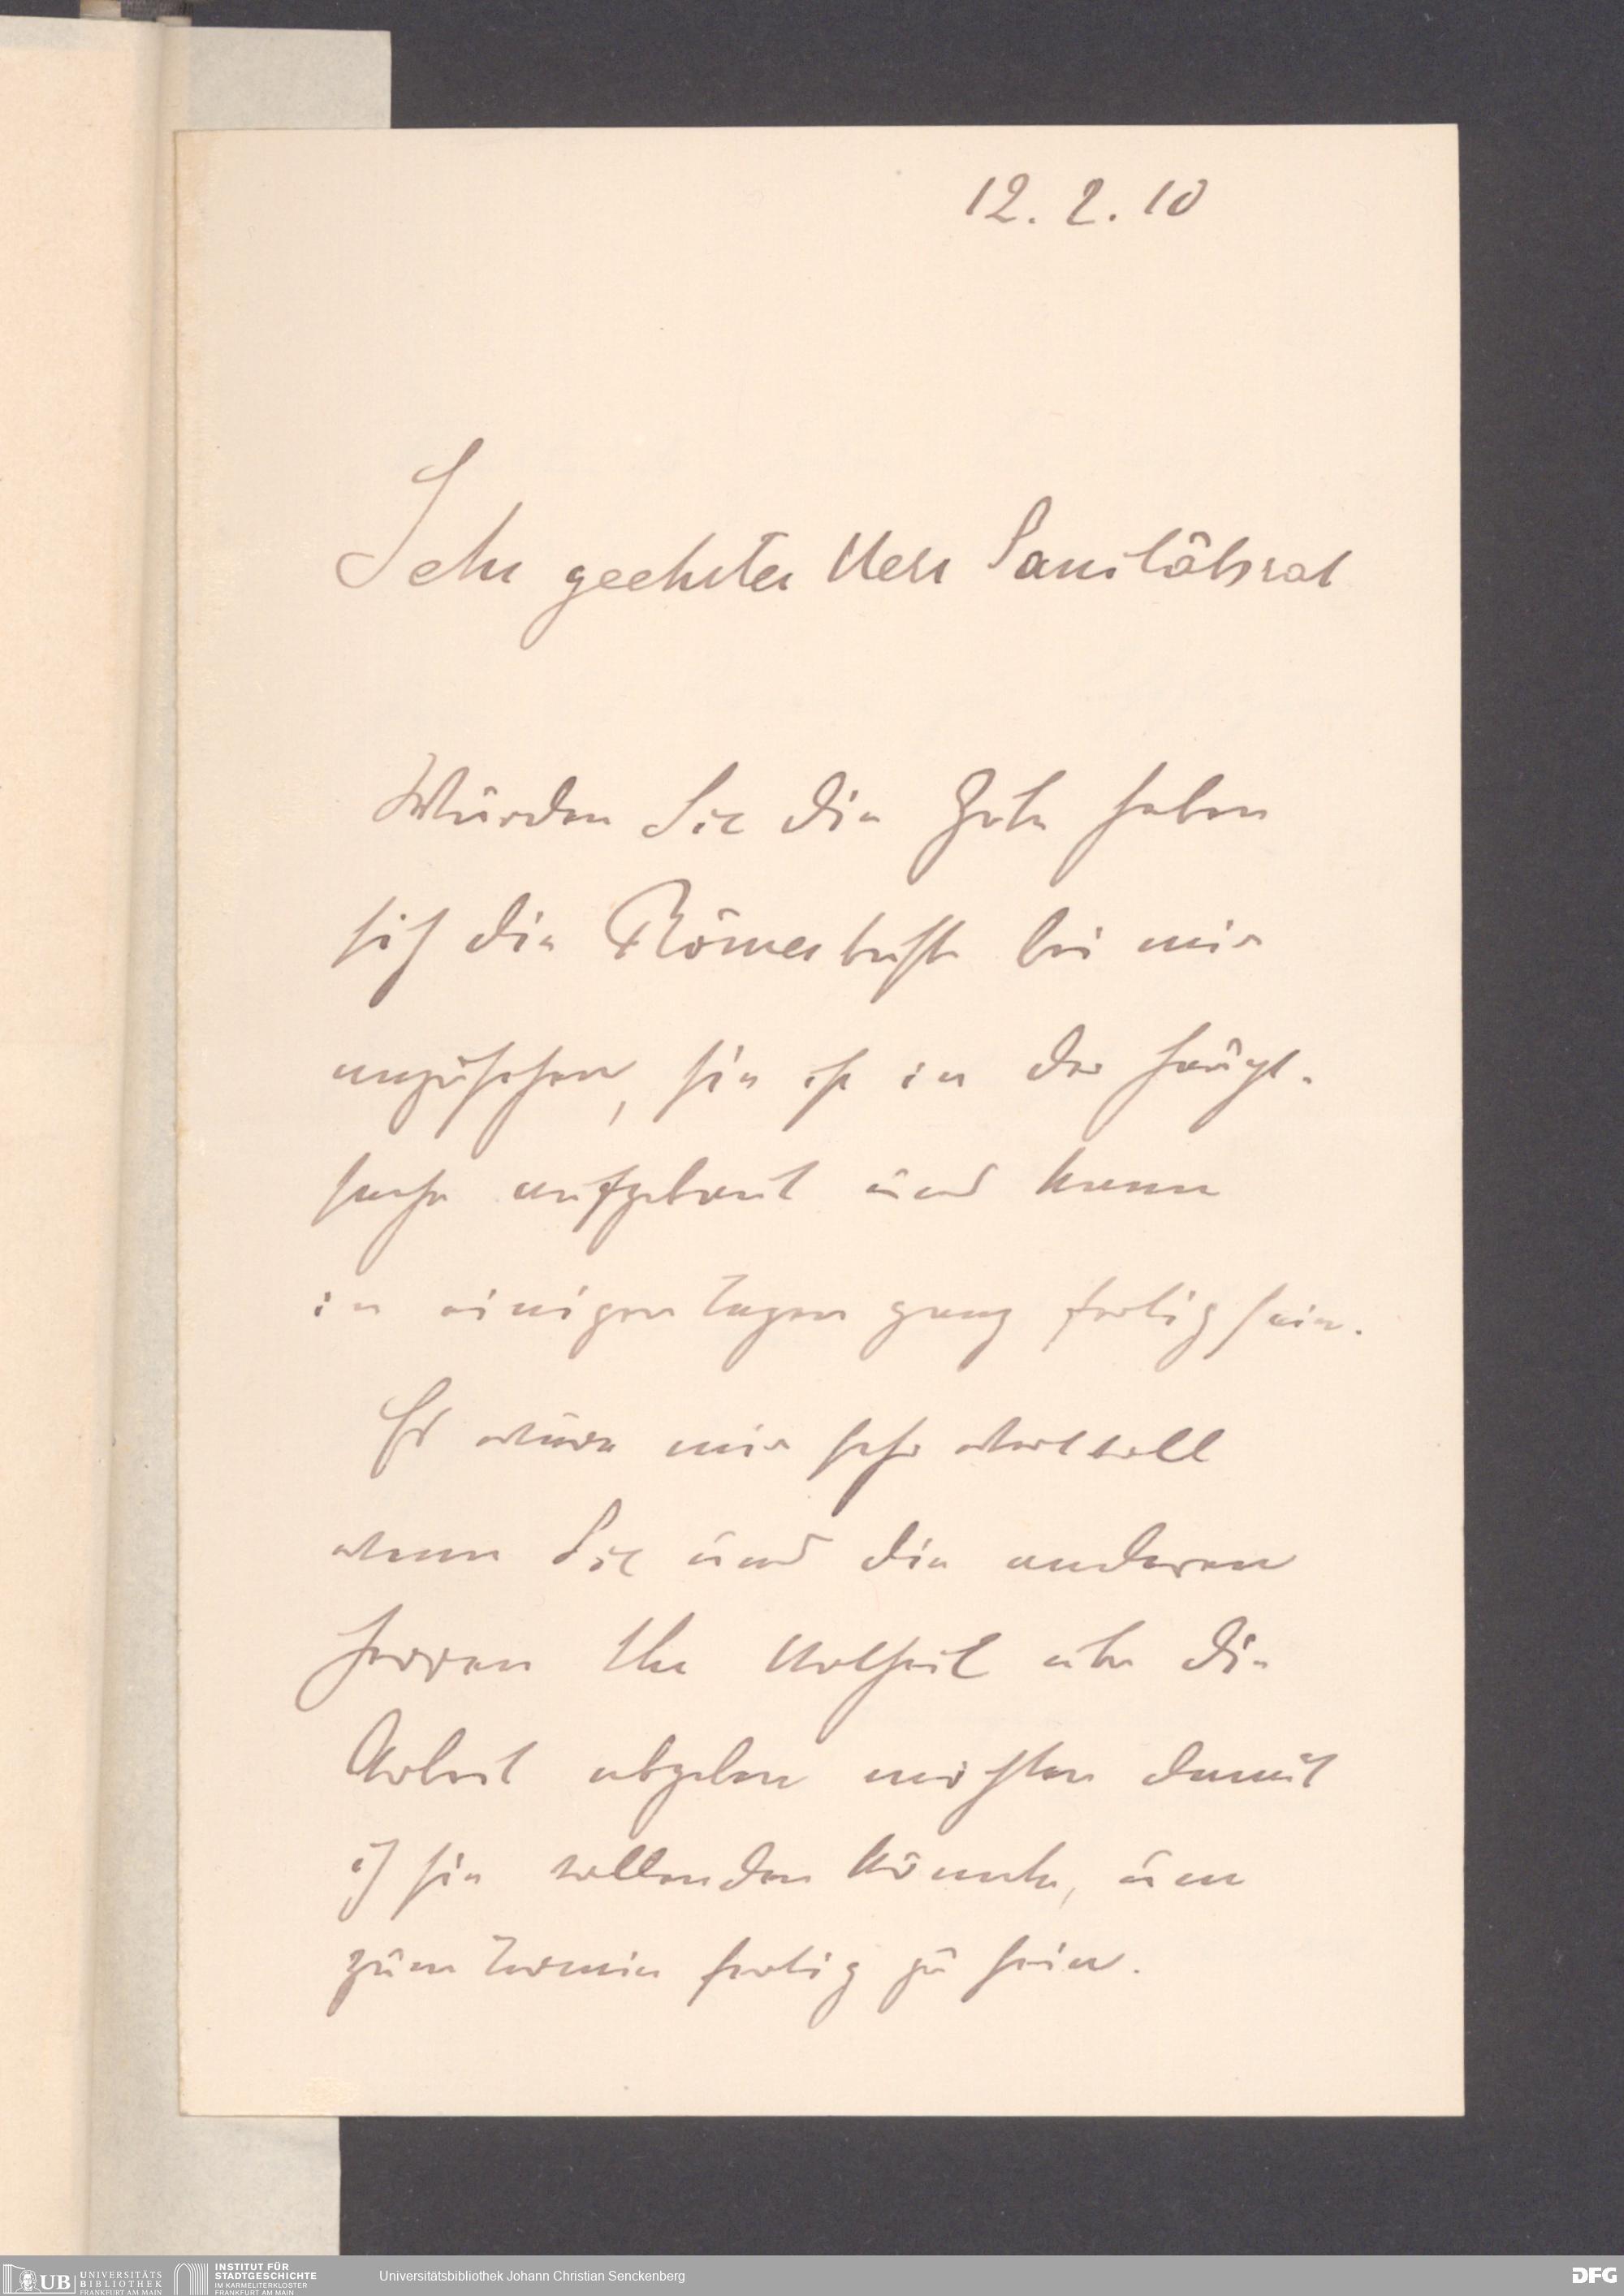 12. 2. 10
Sehr geehrter Herr Sanitätsrat
Würden Sie die Güte haben
sich die Römerbüste bei mir
anzusehen, sie ist in der Haupt-
sache aufgebaut und kann
in einigen Tagen ganz fertig sein.
Es wäre mir sehr wertvoll
wenn Sie und die anderen
Herren Ihr Urtheil über die
Arbeit abgeben möchten damit
ich sie vollenden könnte, um
zum Termin fertig zu sein.
UB UNIVERSITÄTS
BIBLIOTHEK
FRANKFURT AM MAIN
INSTITUT FÜR
STADTGESCHICHTE
IM KARMELITERKLOSTER
FRANKFURT AM MAIN
Universitätsbibliothek Johann Christian Senckenberg
DFG